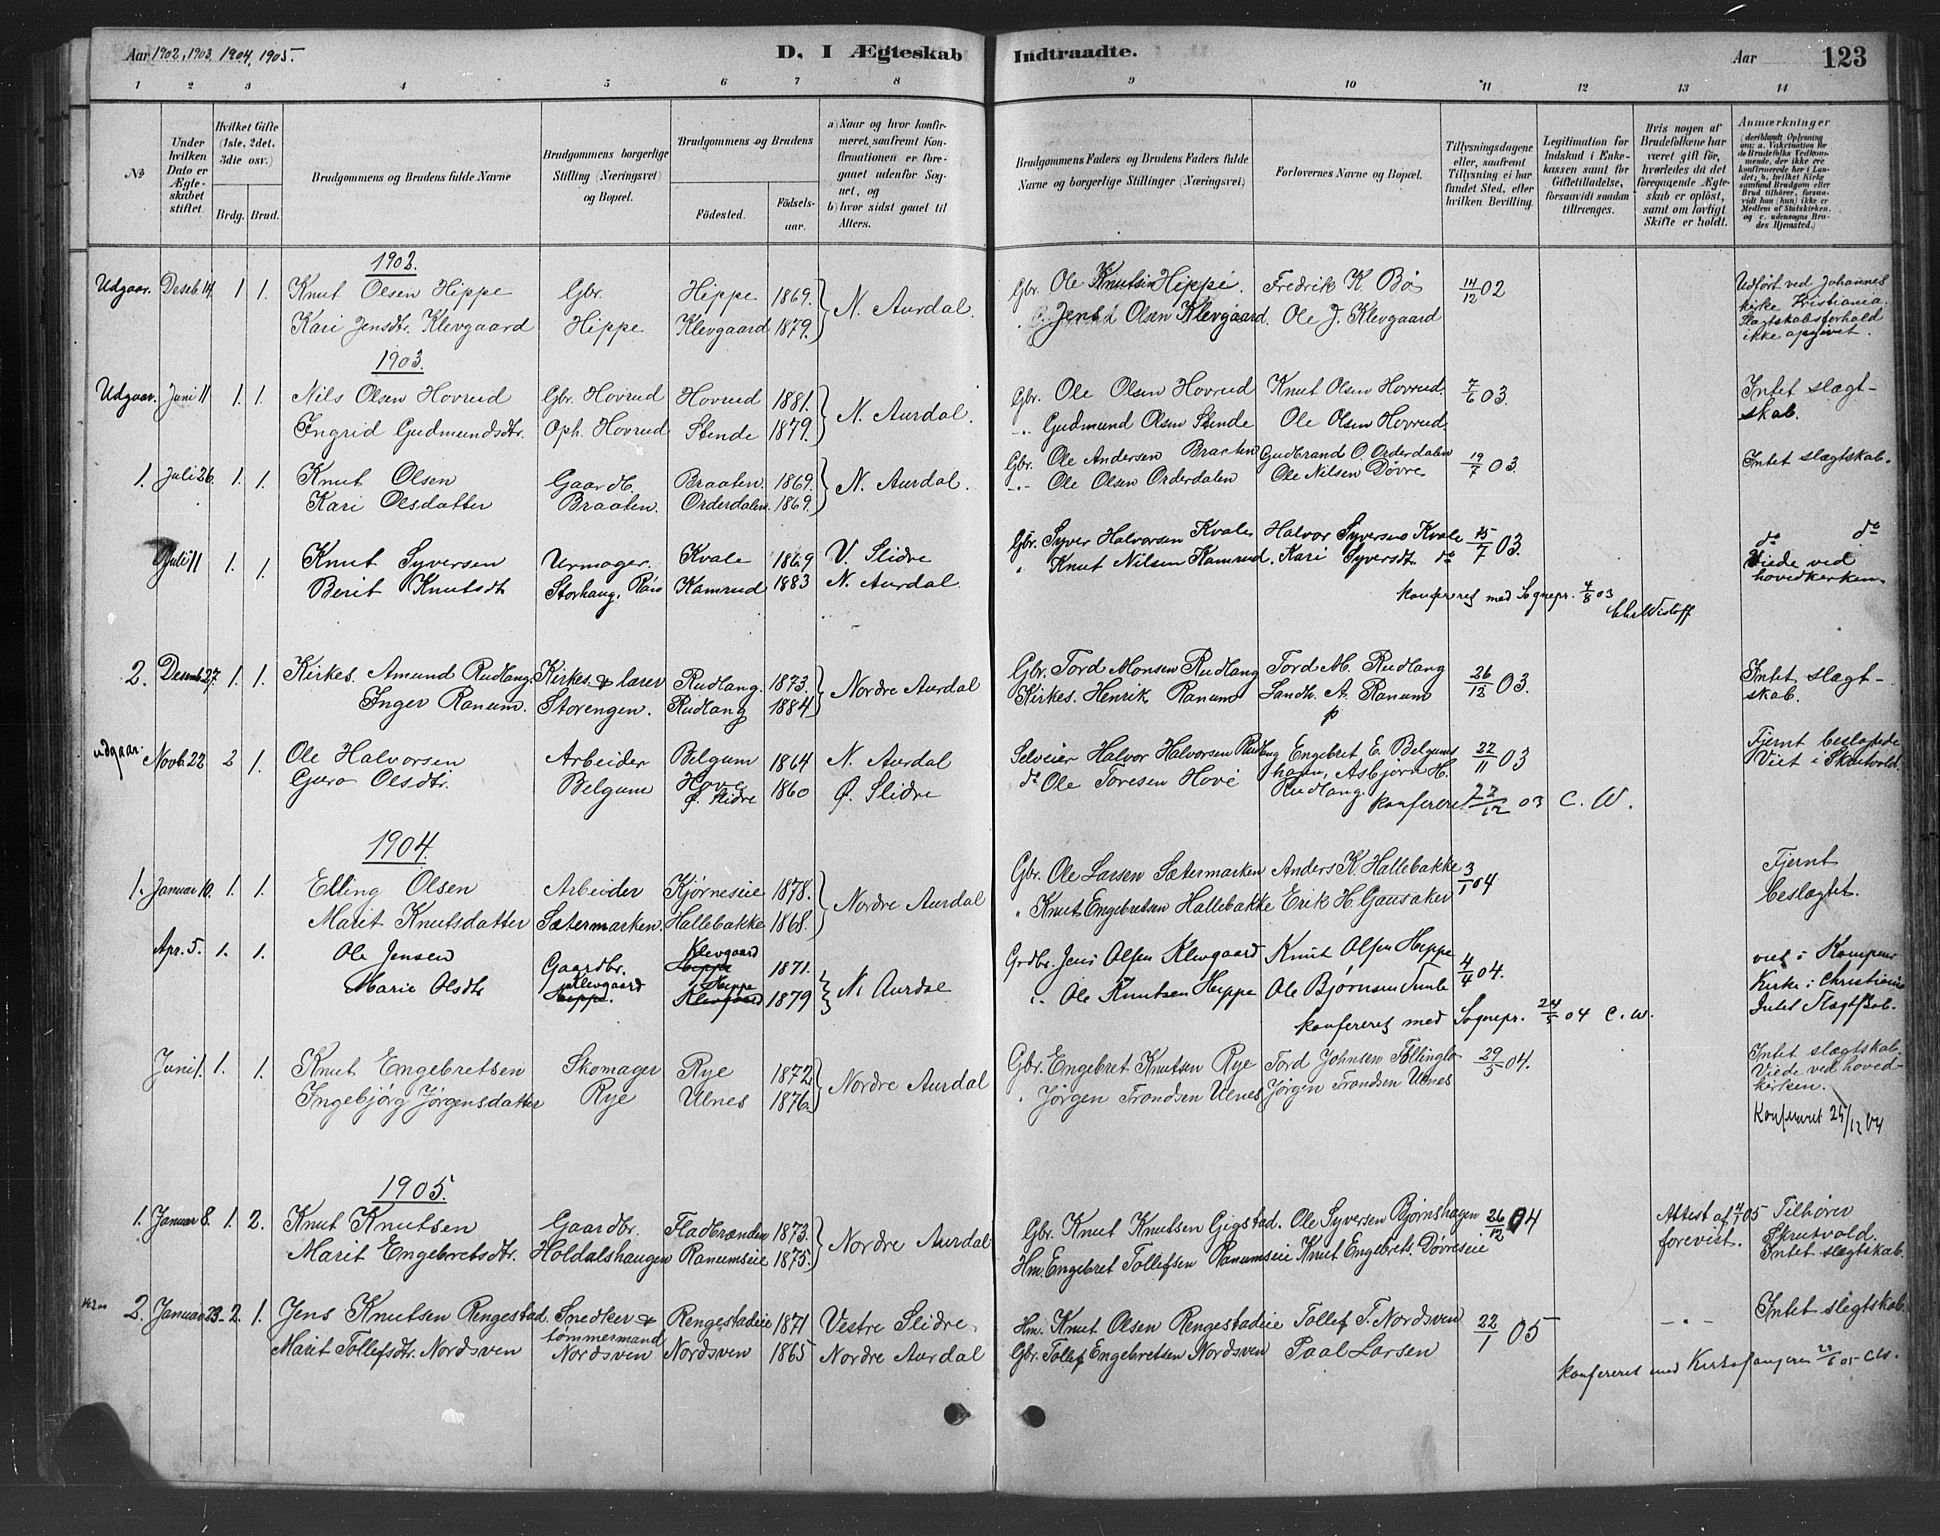 Aar 1902, 1903, 1904, 1905.
D. I Ægteskab Indtraadte.
Aar 123
1 2 3 4 5 6 7 8 9 10 11 12 13 14
No
Under hvilken Dato er Ægteskabet stiftet.
Hvilket Gifte (1ste, 2det, 3die osv.)
Brdg. Brud.
Brudgommens og Brudens fulde Navne
Brudgommens borgerlige Stilling (Næringsvei) og Bopæl.
Brudgommens og Brudens
Fødested. Fødselsaar.
a) Naar og hvor konfirmeret, saafremt Konfirmationen er foregaaet udenfor Sognet, og
b) hvor sidst gaaet til Alters.
Brudgommens Faders og Brudens Faders fulde Navne og borgerlige Stillinger (Næringsvei)
Forlovernes Navne og Bopæl.
Tillysningsdagene eller, saafremt Tillysning ei har fundet Sted, efter hvilken Bevilling.
Legitimation for Indskud i Enkekassen samt for Giftetilladelse, forsaavidt saadan tiltrænges.
Hvis nogen af Brudefolkene har været gift før, hvorledes da det foregaaende Ægteskab er opløst, samt om lovligt Skifte er holdt.
Anmærkninger (deriblandt Oplysning om: a. Vaksination for de Brudefolks Vedkommende, der ikke ere konfirmerede her i Landet; b. hvilket Kirkesamfund Brudgom eller Brud tilhører, forsaavidt han (hun) ikke er Medlem af Statskirken, og c. udensogns Brudes Hjemsted.)
1902.
Udgaar. Deseb. 14. 1 1. Knut Olsen Hippe Gbr. Hippe 1869. N. Aurdal. Gbr. Ole Knutsen Hippe. Fredrik K. Bø 14/12 02 Udført ved Johannes
Kari Jensdtr. Klevgaard Hippe Klevgaard 1879. Jens Olsen Klevgaard. Ole J. Klevgaard kirke Kristiania.
Slagtskabsforhold
ikke opgivet.
1903.
Udgaar. Juni 11 1. 1. Nils Olsen Hovrud Gbr. Hovrud Hovrud 1881. N. Aurdal. Gbr. Ole Olsen Hovrud Knut Olsen Hovrud. 7/6 03. Intet slægt-
Ingrid Gudmundsdtr. Oph. Hovrud Stende 1879. -"- Gudmund Olsen Stende Ole Olsen Hovrud. skab.
1. Juli 26. 1. 1. Knut Olsen Gaardb. Braaten. 1869. N. Aurdal. Gbr. Ole Andersen Braaten Gudbrand O. Orderdalen 19/7 03. Intet slægtskab.
Kari Olsdatter Braaten. Orderdalen. 1869. -"- Ole Olsen Orderdalen Ole Nilsen Døvre
Juli 11 1. 1. Knut Syversen Urmager. Kvale 1869 V. Slidre Gbr. Syver Halvorsen Kvale Halvor Syversen Kvale 15/7 03. do do
Berit Knutsdt Storhaug, Kamrud 1883 N. Aurdal. " Knut Nilsen Kamrud. Kari Syversdt. do Viede ved
hovedkirken
konfereret med Sognepr. 4/8 03
2. Desemb 27. 1. 1. Kirkes. Amund Rudlang. Kirkes. & lærer Rudlang. 1873. Nordre Aurdal Gbr. Tord Monsen Rudlang Tord M. Rudlang 26/12 03. Intet slægt-
Inger Ranum. Storengen. Rudlang 1884 Kirkes. Henrik Ranum Landh. A. Ranum skab.
udgaar. Novb. 22 2 1. Ole Halvorsen Arbeider Belgum 1864 N. Aurdal Selveier Halvor Halvorsen Rudlang Engebret E. Belgums 22/11 03 Fjernt beslægtede
Guro Olsdtr. Belgum Hove 1860 Ø. Slidre do Ole Toresen Hove haven, Asbjørn H. Viet i Skrutvold.
Ø. Slidre Rudlang.
konfereret 22/12 03 C. W.
1904.
1. Januar 10. 1. 1. Elling Olsen Arbeider Kjørneseie 1878. Nordre Aurdal Gbr. Ole Larsen Sætermarken Anders K. Hallebakke 3/1 04 Fjernt
Marit Knutsdatter Sætermarken. Hallebakke 1868. " Knut Engebretsen Hallebakke Erik H. Gausaker beslægtet.
Apr. 5. 1. 1. Ole Jensen Gaardbr. Klevgaard Hippe 1871. N. Aurdal Grdbr. Jens Olsen Klevgaard Knut Olsen Hippe 4/4 04. viet i Kampens
Marie Olsdtr Klevgaard Hippe. Hippe Klevgaard 1879 Ole Knutsen Hippe Ole Bjørnsen Tunle Kirke i Christiania
Intet Slagtskab.
konfereret med Sognepr. 24/5 04 C. W.
Juni 1. 1. 1. Knut Engebretsen Skomager Rye 1872 Nordre Aurdal Gbr. Engebret Knutsen Rye Tord Johnsen Tollinglo 29/5 04. Intet slægtskab.
Ingebjørg Jørgensdatter Rye Ulnes 1876. " Jørgen Trondsen Ulnes Jørgen Trondsen Ulnes Viede ved hoved-
kirken.
Konfereret 25/12 04
1905.
1. Januar 8. 1. 2. Knut Knutsen Gaardbr. Fladbrænden 1873. Nordre Aurdal Gbr. Knut Knutsen Gigstad. Ole Syversen Bjørnshagen 26/12 04 Attest af 4/1 05 Tilhører
Marit Engebretsdtr. Holdalshaugen Ranumseie 1875. Hm. Engebret Tollefsen Ranumseie Knut Engebrets. Døvreseie forevist. Skrutvold.
Intet slægtskab.
2. Januar 23. 2. 1. Jens Knutsen Rengestad. Snedker & Rengestadeie 1871 Vestre Slidre. Hm. Knut Olsen Rengestadeie Tollef T. Nordsven 22/1 05 -"- Intet slægtskab
tømmermand
Marit Tollefsdtr. Nordsven Nordsven Nordsven 1865 Nordre Aurdal Gbr. Tollef Engebretsen Nordsven Paal Larsen
konfereret med